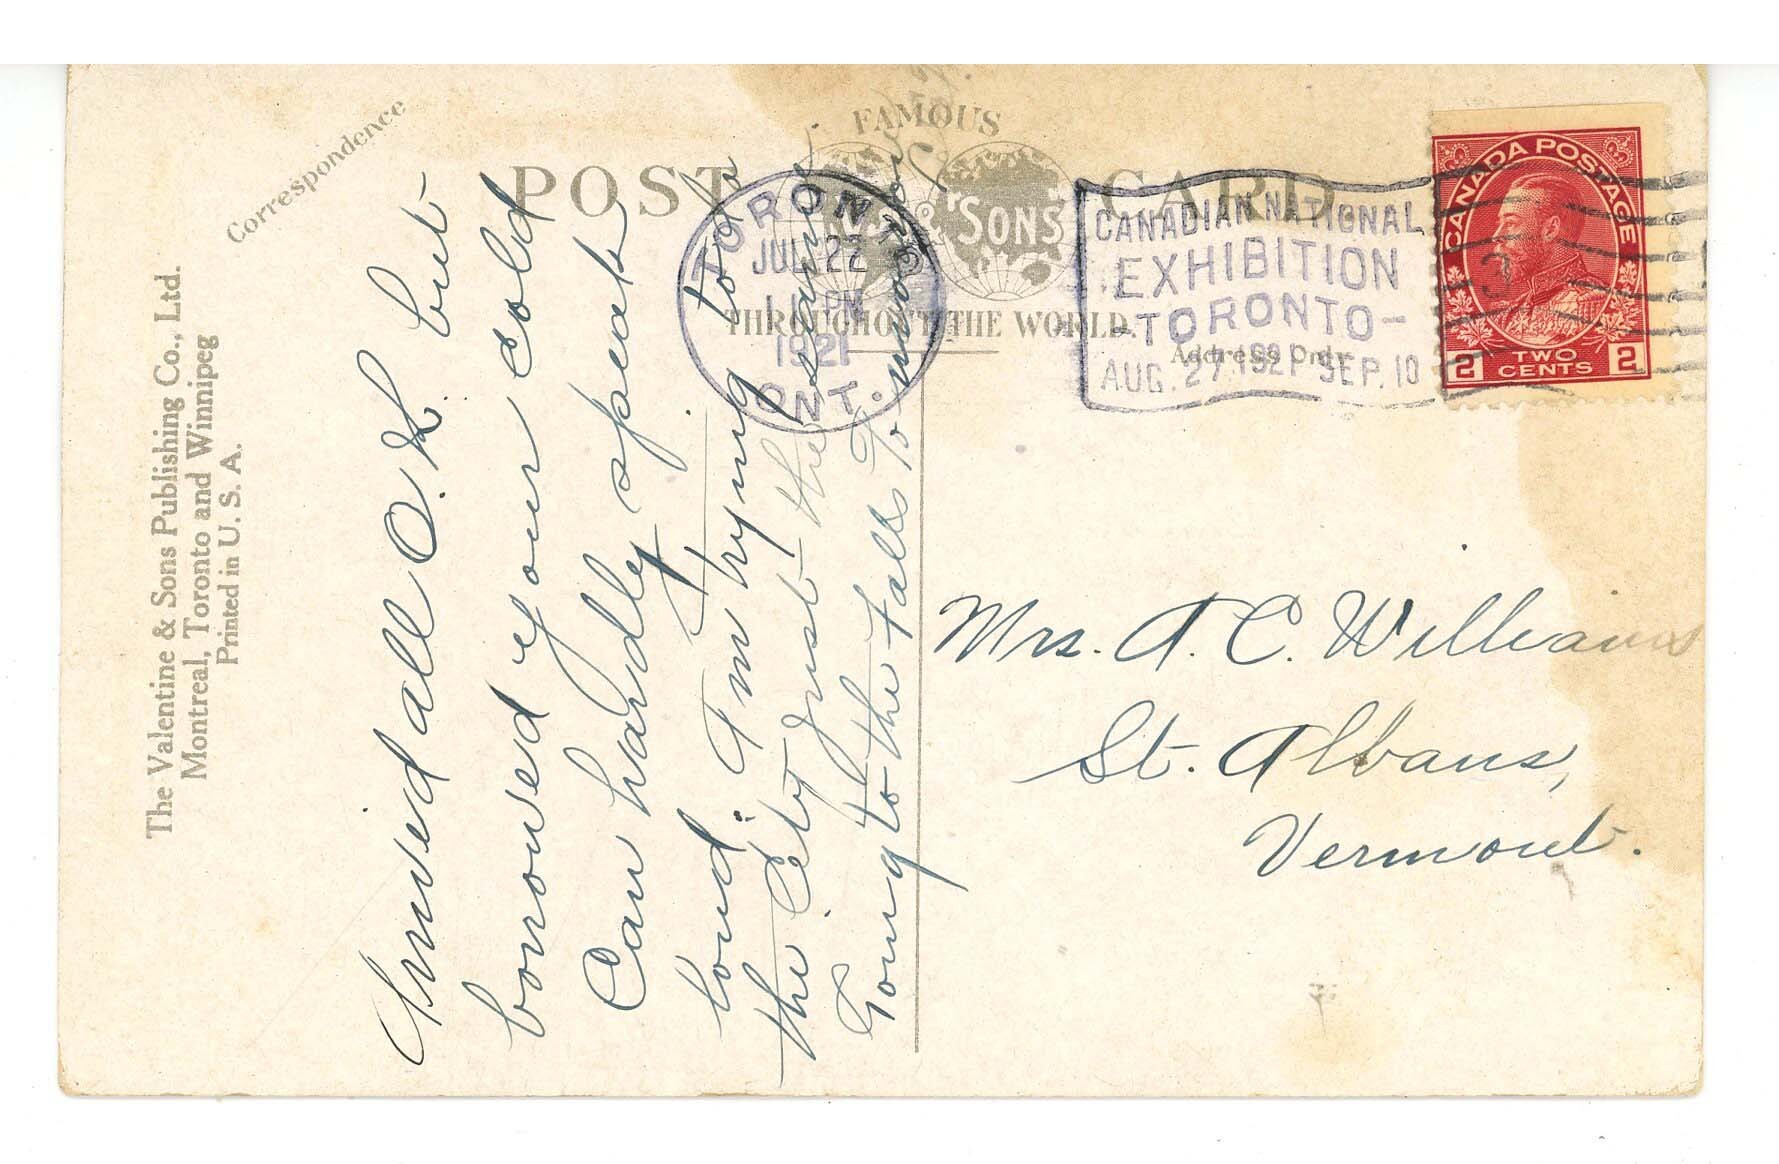 Correspondence
The Valentine & Sons Publishing Co., Ltd.
Montreal, Toronto and Winnipeg
Printed in U. S. A.
POST CARD
FAMOUS
& SONS
THROUGHOUT THE WORLD.
Address Only
TORONTO
JUL 22
11 PM
1921
ONT.
CANADIAN NATIONAL
EXHIBITION
-TORONTO-
AUG. 27 1921 SEP. 10
CANADA POSTAGE
2 TWO CENTS 2
3
Arrived all O.K. but
borrowed your cold
Can hardly speak
loud. I'm trying to do
the City just the same
Going to the Falls To morrow
Mrs. A. C. Williams
St. Albans,
Vermont.